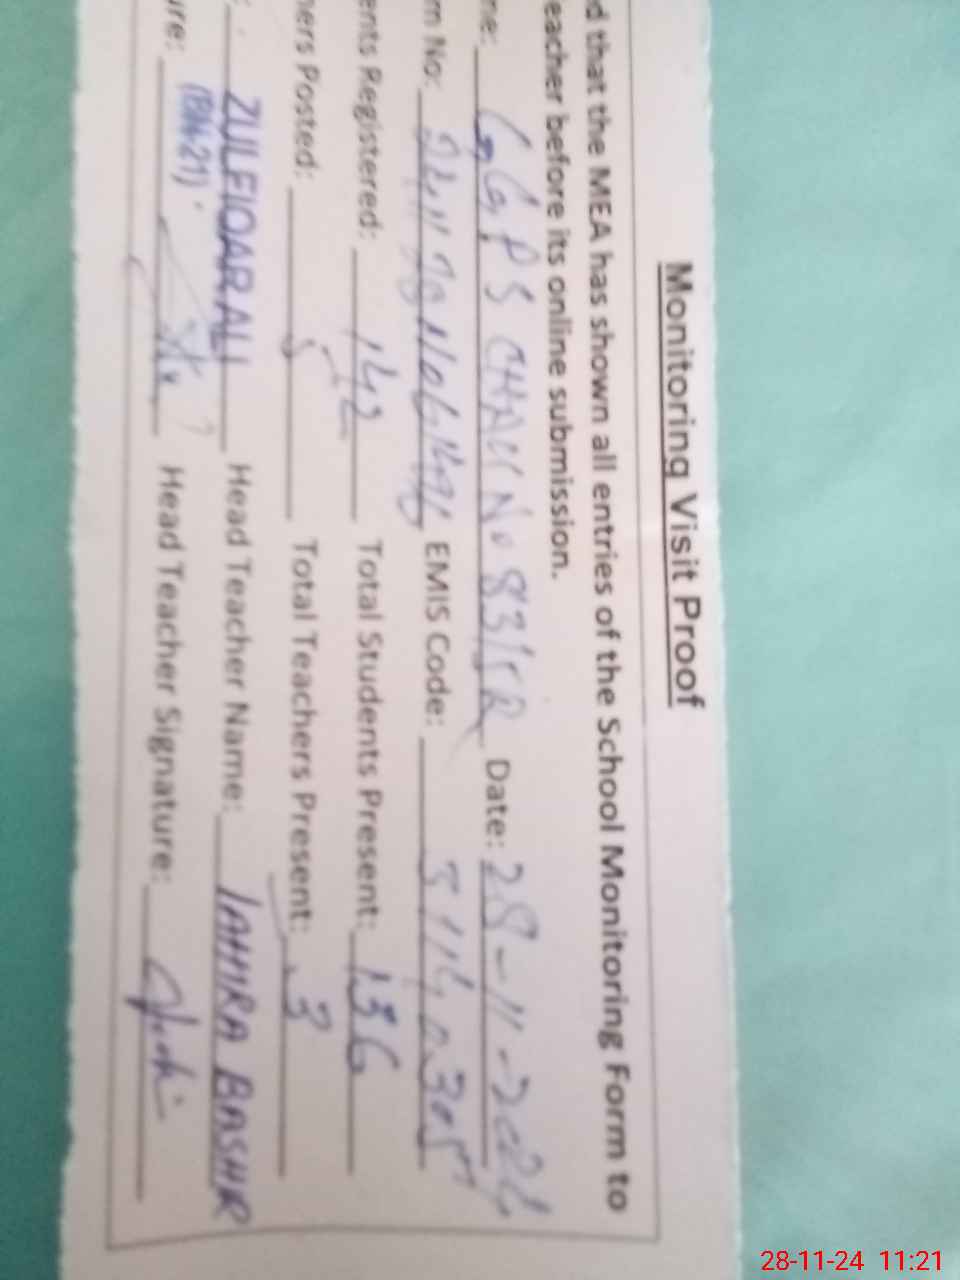 Monitoring Visit Proof
d that the MEA has shown all entries of the School Monitoring Form to
eacher before its online submission.
ne: GGPS CHAK No 83/5R Date: 28-11-2024
m No: EMIS Code: 31140305
ents Registered: 142 Total Students Present: 136
ners Posted: 5 Total Teachers Present: 3
: ZULFIQAR ALI Head Teacher Name: TAHIRA BASHIR
ure: Head Teacher Signature:
28-11-24 11:21